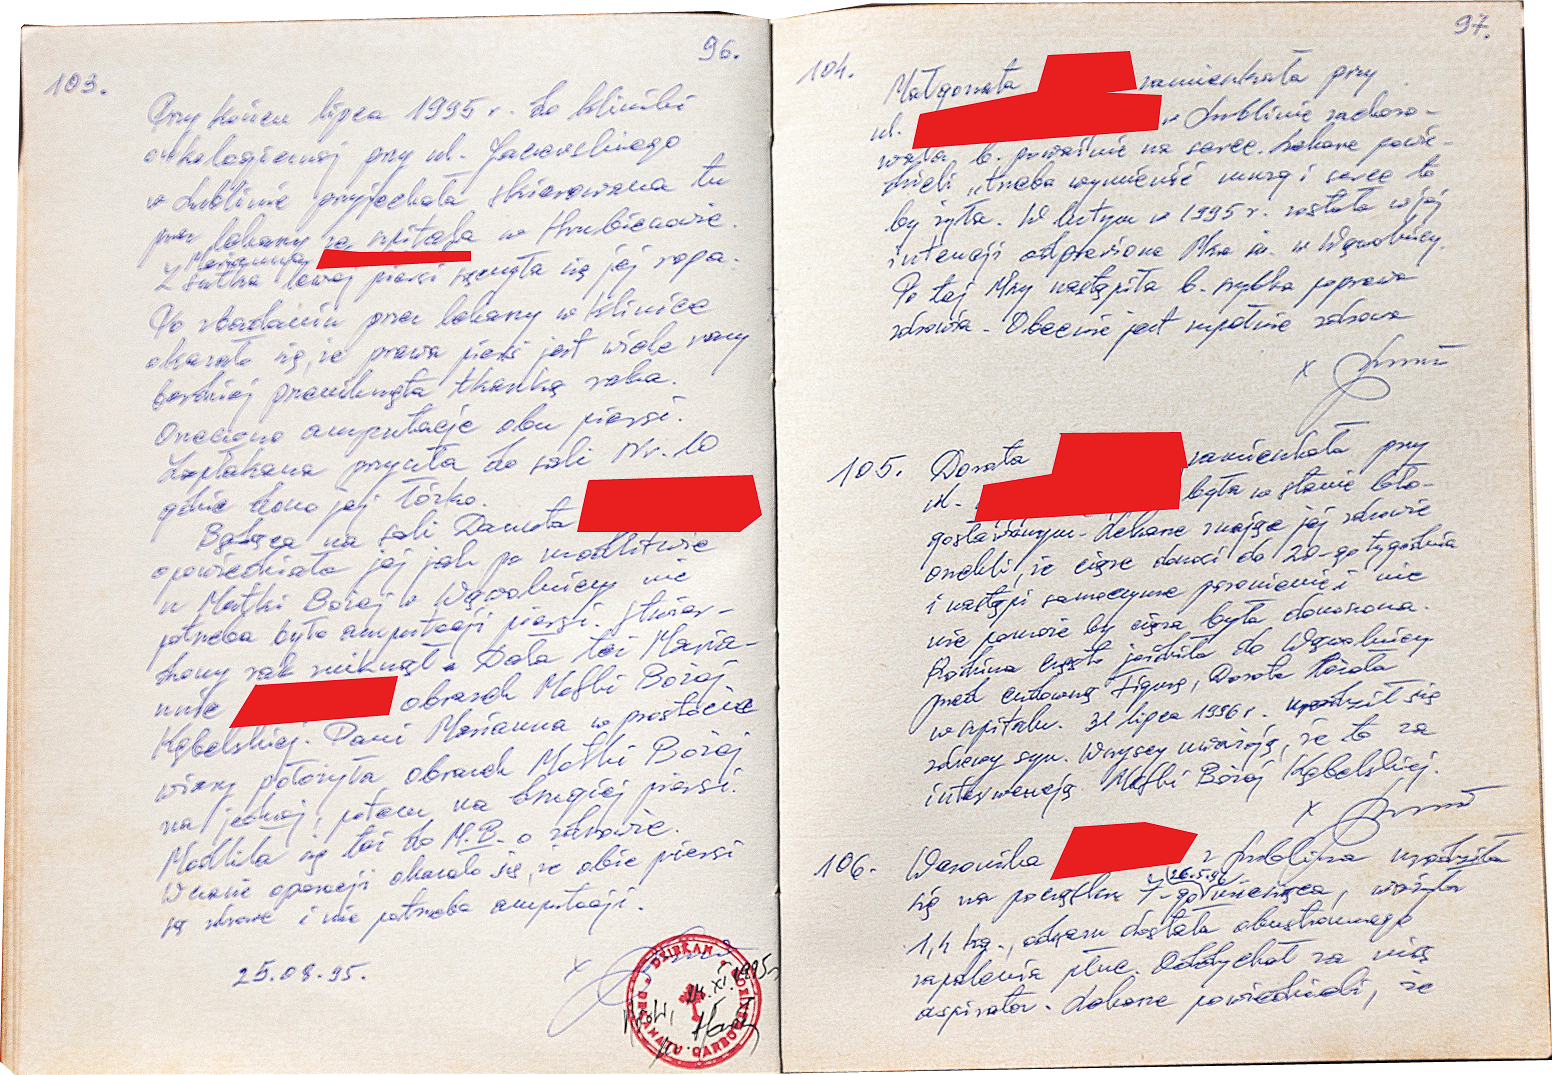 96.
103.
Przy końcu lipca 1995 r. do kliniki
onkologicznej przy ul. Jaczewskiego
w Lublinie przyjechała skierowana tu
przez lekarzy ze szpitala w Hrubieszowie.
Marianna
Z sutka lewej piersi sączyła się jej ropa.
Po zbadaniu przez lekarzy w klinice
okazało się, że prawa pierś jest wiele razy
bardziej przeniknięta tkanką raka.
Orzeczono amputację obu piersi.
Zapłakana przyszła do sali Nr. 10
gdzie dano jej łóżko.
Będąca na sali Danuta
opowiedziała jej jak po modlitwie
u Matki Bożej w Wąwolnicy nie
potrzeba było amputacji piersi. Stwier-
dzony rak zniknął. Dała też Maria-
nnie obrazek Matki Bożej
Kębelskiej. Pani Marianna w prostocie
wiary położyła obrazek Matki Bożej
na jednej, potem na drugiej piersi.
Modliła się też do M.B. o zdrowie.
W czasie operacji okazało się, że obie piersi
są zdrowe i nie potrzeba amputacji.
25.08.95.
x
DZIEKAN
DEKANATU GARBÓW
24.XI.1995r
97.
104.
Małgorzata zamieszkała przy
ul. w Lublinie zachoro-
wała b. poważnie na serce. Lekarze powie-
dzieli „trzeba wymienić mózg i serce to
by żyła. W lutym w 1995 r. została w jej
intencji odprawiona Msza św. w Wąwolnicy.
Po tej Mszy nastąpiła b. szybka poprawa
zdrowia. Obecnie jest zupełnie zdrowa
x
105. Dorota zamieszkała przy
ul. była w stanie błogo-
gosławionym. Lekarze znając jej zdrowie
orzekli, że ciąża donosi do 20-go tygodnia
i nastąpi samoczynne poronienie i nic
nie pomoże by ciąża była donoszona.
Rodzina często jeździła do Wąwolnicy
przed cudowną Figurę, Dorota leżała
w szpitalu. 31 lipca 1996 r. urodził się
zdrowy syn. Wszyscy uważają, że to za
interwencją Matki Bożej Kębelskiej.
x
106. Weronika z Lublina urodziła
się na początku 7-go miesiąca, ważyła
1,4 kg., odrazu dostała obustronnego
zapalenia płuc. Oddychał za nią
aspirator. Lekarze powiedzieli, że